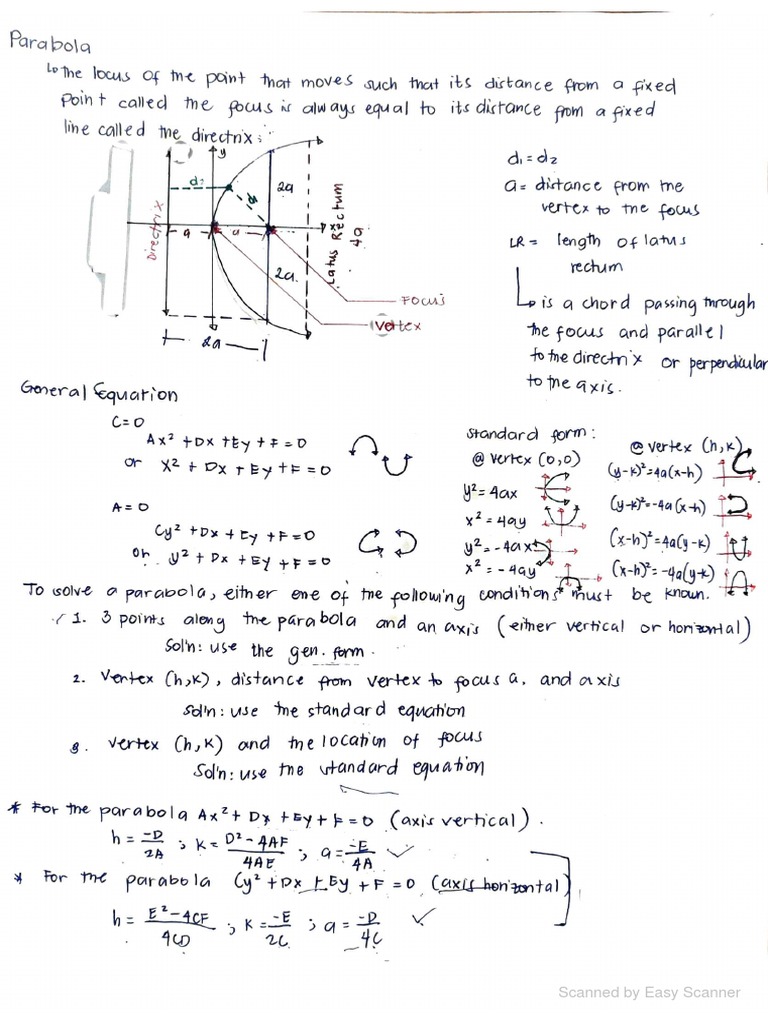 Parabola
↳ the locus of the point that moves such that its distance from a fixed
point called the focus is always equal to its distance from a fixed
line called the directrix.
y
d₂
d₁
2a
a
a
2a
2a
Directrix
Latus Rectum
4a
Focus
Vertex
d₁ = d₂
a = distance from the
vertex to the focus
LR = length of latus
rectum
↳ is a chord passing through
the focus and parallel
to the directrix or perpendicular
to the axis.
General Equation
C=0
Ax² + Dx + Ey + F = 0
or x² + Dx + Ey + F = 0
A=0
Cy² + Dx + Ey + F = 0
or y² + Dx + Ey + F = 0
standard form:
@ vertex (0,0)
y² = 4ax
x² = 4ay
y² = -4ax
x² = -4ay
@ vertex (h,k)
(y-k)² = 4a(x-h)
(y-k)² = -4a(x-h)
(x-h)² = 4a(y-k)
(x-h)² = -4a(y-k)
To solve a parabola, either one of the following conditions must be known.
1. 3 points along the parabola and an axis (either vertical or horizontal)
Sol'n: use the gen. form.
2. Vertex (h,k), distance from vertex to focus a, and axis
sol'n: use the standard equation
3. vertex (h,k) and the location of focus
Sol'n: use the standard equation
* For the parabola Ax² + Dx + Ey + F = 0 (axis vertical).
h = -D/2A ; k = D²-4AF/4AE ; a = -E/4A ✓
* For the parabola Cy² + Dx + Ey + F = 0 (axis horizontal)
h = E²-4CF/4CD ; k = -E/2C ; a = -D/4C ✓
Scanned by Easy Scanner